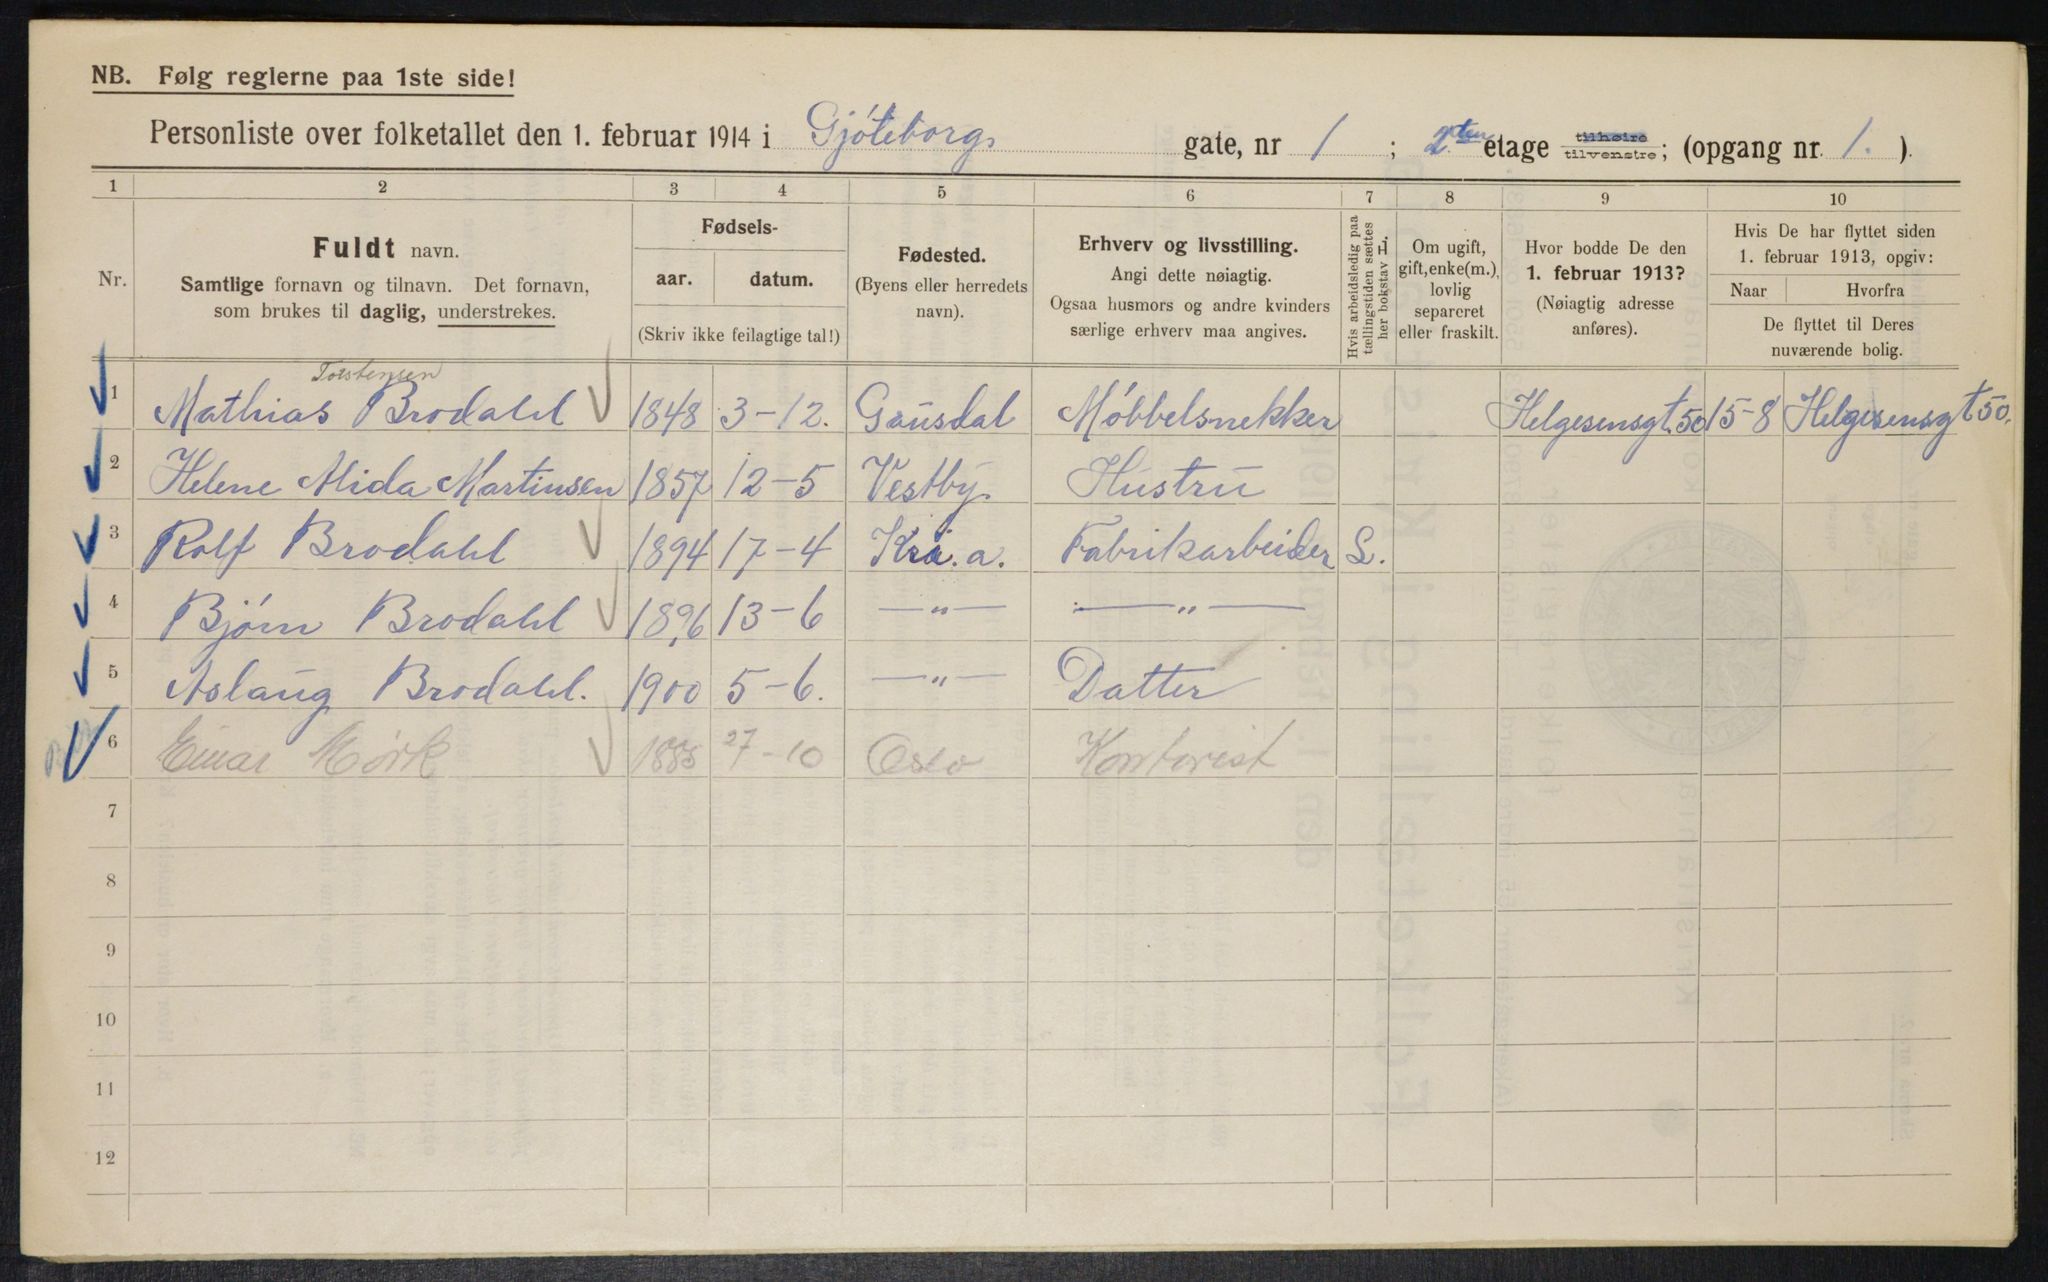 NB. Følg reglerne paa 1ste side!
Personliste over folketallet den 1. februar 1914 i Gjöteborgs gate, nr 1 ; 2den etage tilhøire tilvenstre; (opgang nr. 1. ).
1 2 3 4 5 6 7 8 9 10
Nr.
Fuldt navn.
Samtlige fornavn og tilnavn. Det fornavn,
som brukes til daglig, understrekes.
Fødsels-
aar. datum.
(Skriv ikke feilagtige tal!)
Fødested.
(Byens eller herredets
navn).
Erhverv og livsstilling.
Angi dette nøiagtig.
Ogsaa husmors og andre kvinders
særlige erhverv maa angives.
Hvis arbeidsledig paa
tællingstiden sættes
her bokstav L.
Om ugift,
gift, enke(m.),
lovlig
separeret
eller fraskilt.
Hvor bodde De den
1. februar 1913?
(Nøiagtig adresse
anføres).
Hvis De har flyttet siden
1. februar 1913, opgiv:
Naar Hvorfra
De flyttet til Deres
nuværende bolig.
Torstensen
1 Mathias Brodahl 1848 3-12. Gausdal Möbbelsnekker Helgesensgt. 50 15-8 Helgesensgt 50.
2 Helene Alida Martinsen 1857 12-5 Vestby. Hustru
3 Rolf Brodahl 1894 17-4 Kra.a. Fabrikarbeider L.
4 Bjørn Brodahl 1896 13-6 —"— —"—
5 Aslaug Brodahl. 1900 5-6. —"— Datter
6 Einar Mørk 1885 27-10 Oslo Kontorist
7
8
9
10
11
12